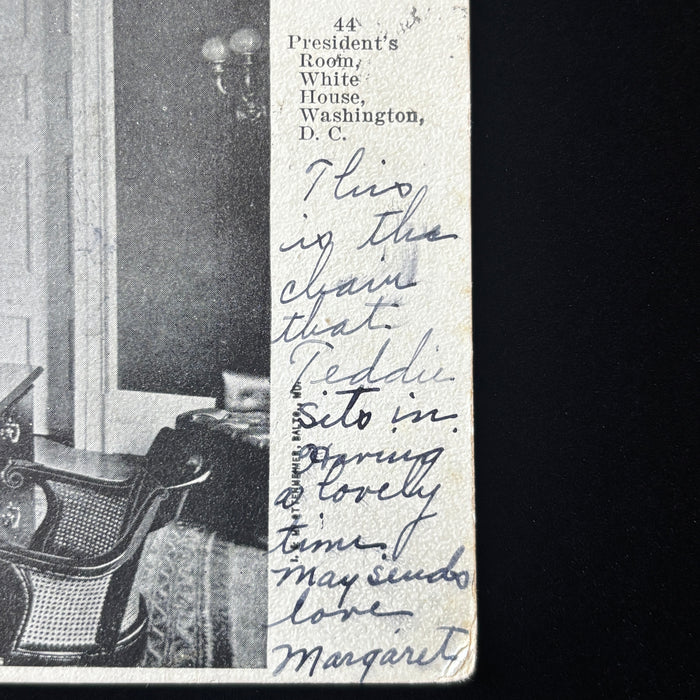 44
President's
Room,
White
House,
Washington,
D. C.
This
is the
chair
that
Teddie
sits in.
Having
a lovely
time.
May sends
love
Margaret
BALTO., MD.